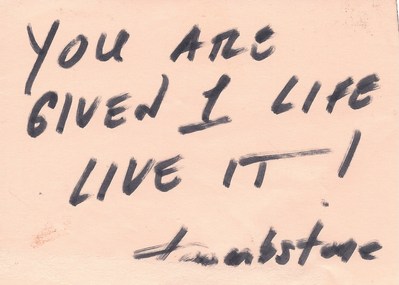 YOU ARE
GIVEN 1 LIFE
LIVE IT!
tombstone